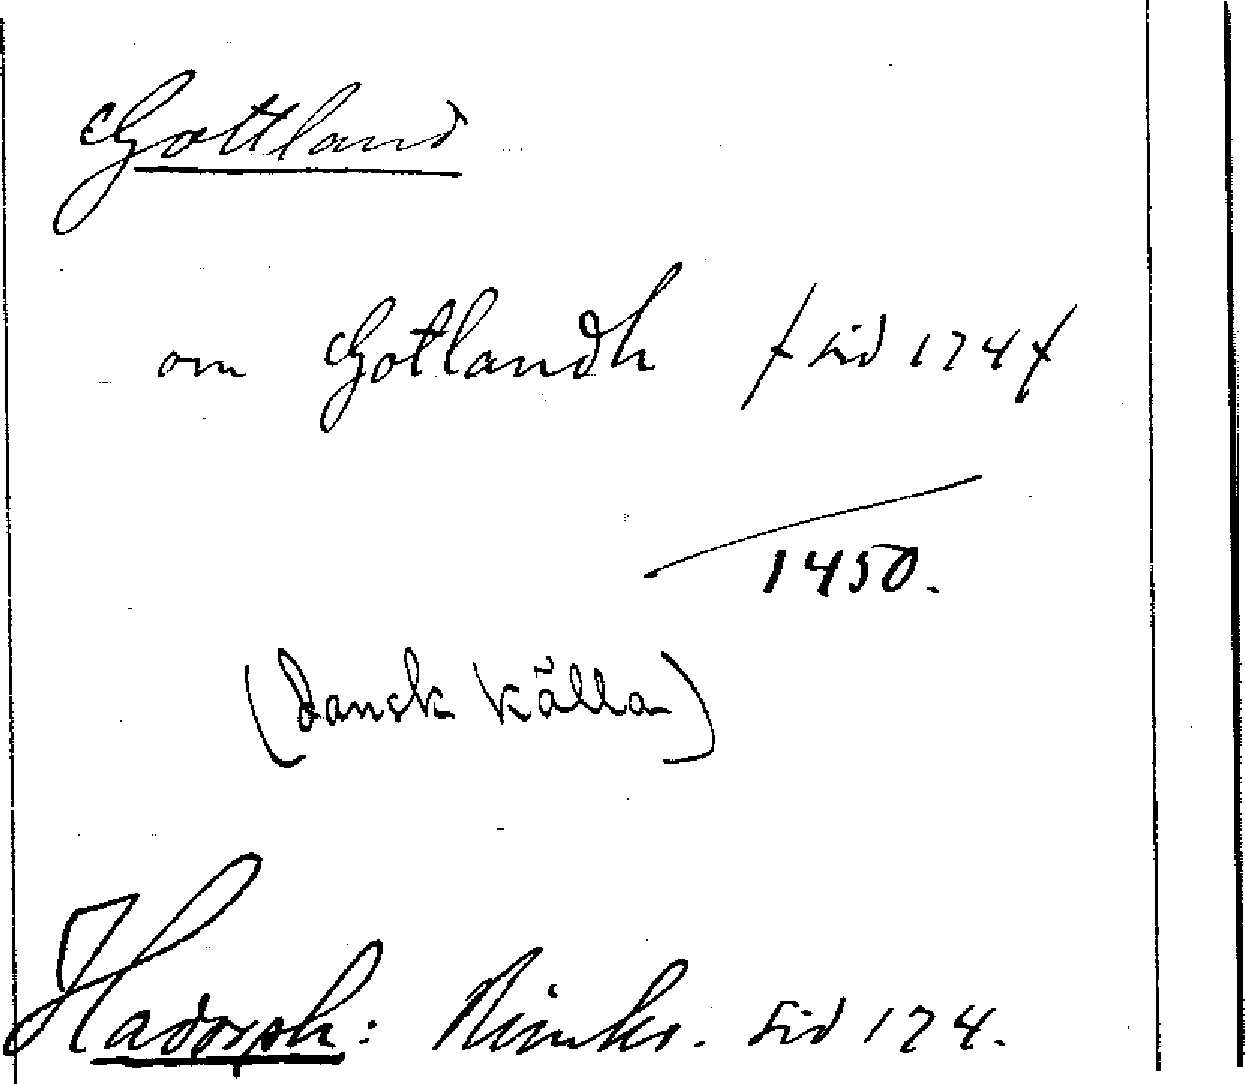 Gottland
om Gotlandh / sid 174 /
1450.
(Dansk källa)
Hadorph: Rimkr. sid 174.